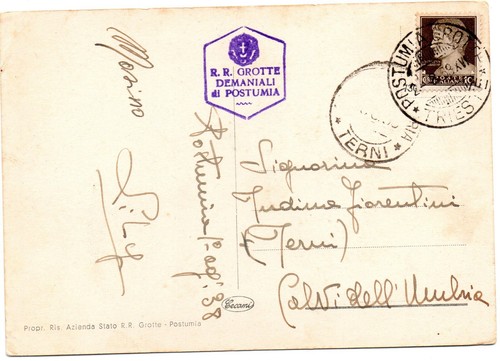 R. R. GROTTE
DEMANIALI
di POSTUMIA
POSTUMIA GROTTE
TRIESTE
TERNI
Postumia 1° ag. 38
Signorina
Fiorentini
(Terni)
Calvi dell'Umbria
Cecami
Propr. Ris. Azienda Stato R.R. Grotte - Postumia